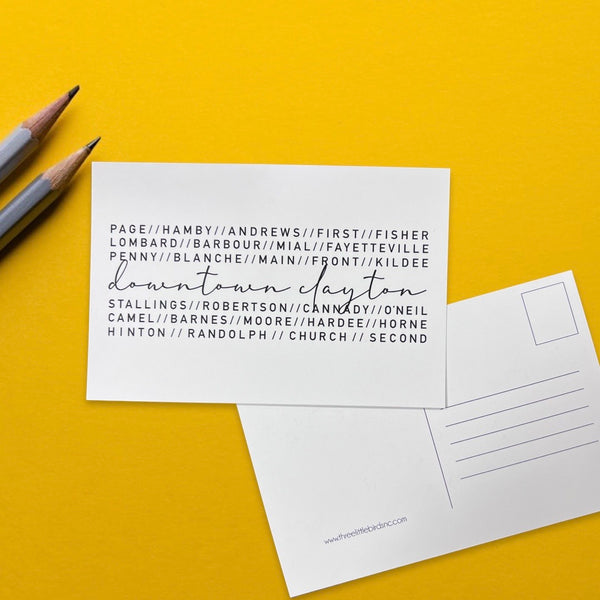 PAGE//HAMBY//ANDREWS//FIRST//FISHER
LOMBARD//BARBOUR//MIAL//FAYETTEVILLE
PENNY//BLANCHE//MAIN//FRONT//KILDEE
downtown clayton
STALLINGS//ROBERTSON//CANNADY//O'NEIL
CAMEL//BARNES//MOORE//HARDEE//HORNE
HINTON // RANDOLPH // CHURCH // SECOND
www.threelittlebirdsnc.com